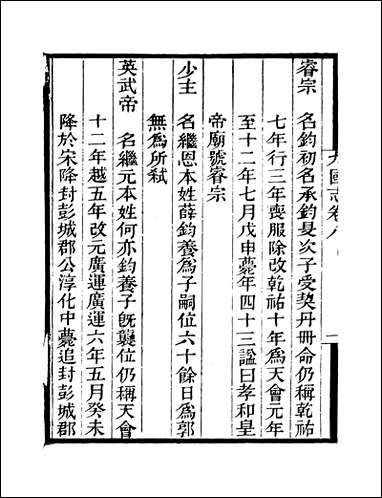 九國志卷八
一
睿宗 名鈞初名承鈞旻次子受契丹冊命仍稱乾祐
七年行三年喪服除改乾祐十年爲天會元年
至十二年七月戊申薨年四十三謚曰孝和皇
帝廟號睿宗
少主 名繼恩本姓薛鈞養爲子嗣位六十餘日爲郭
無爲所弒
英武帝 名繼元本姓何亦鈞養子旣襲位仍稱天會
十二年越五年改元廣運廣運六年五月癸未
降於宋降封彭城郡公淳化中薨追封彭城郡